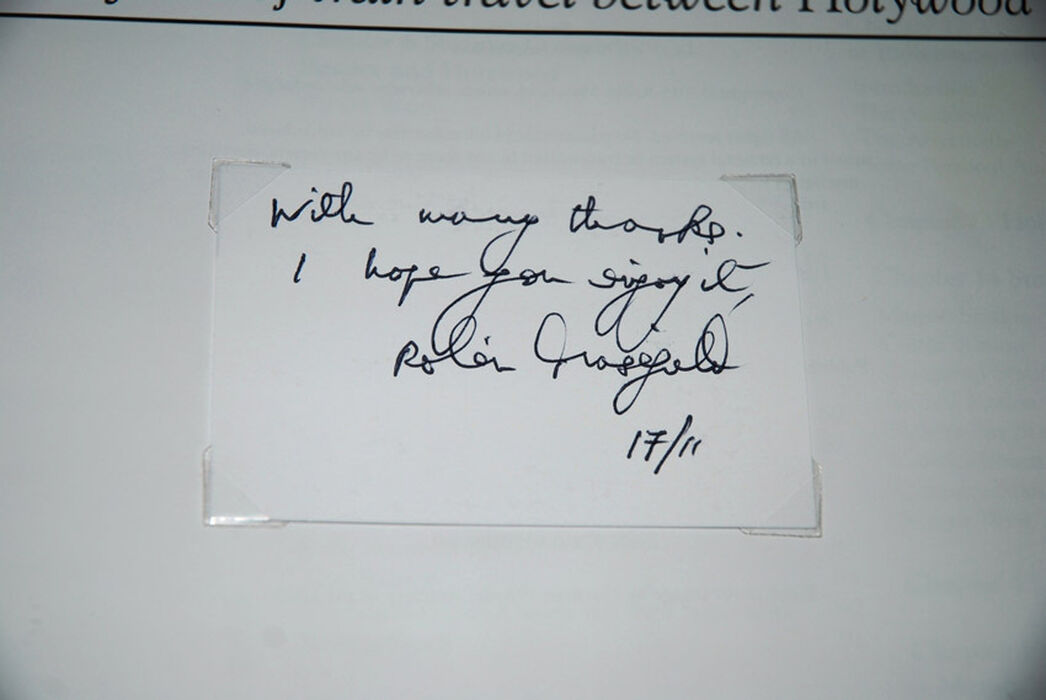 of train travel between Holywood
With many thanks.
I hope you enjoy it,
Robin
17/11